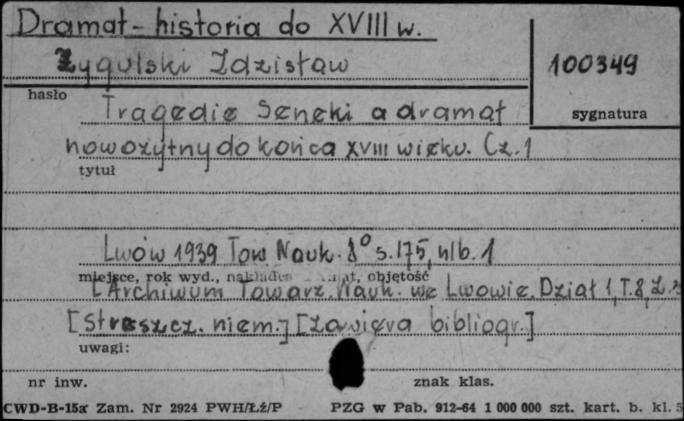 Dramat - historia do XVIII w.
Żygulski Zdzisław
100349
hasło
sygnatura
Tragedie Seneki a dramat
nowożytny do końca XVIII wieku. Cz. 1
tytuł
Lwów 1939 Tow. Nauk. 8° s. 175, nlb. 1
miejsce, rok wyd., nakładca, format, objętość
[Archiwum Towarz. Nauk. we Lwowie. Dział 1, T. 8, Z.
[Streszcz. niem.] [Zawiera bibliogr.]
uwagi:
nr inw.
znak klas.
CWD-B-15a Zam. Nr 2924 PWH/Łź/P
PZG w Pab. 912-64 1 000 000 szt. kart. b. kl. 5